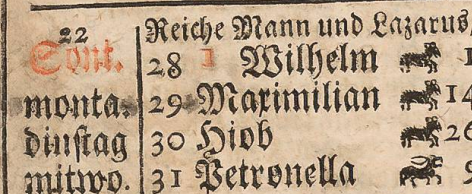 22 Reiche Mann und Lazarus,
Sont. 28 1 Wilhelm
monta. 29 Maximilian 14
dinstag 30 Hiob
mitwo. 31 Petronella